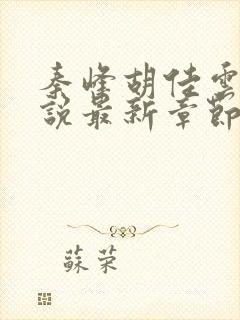 秦峰胡佳雲
說最新章節
蘇荣